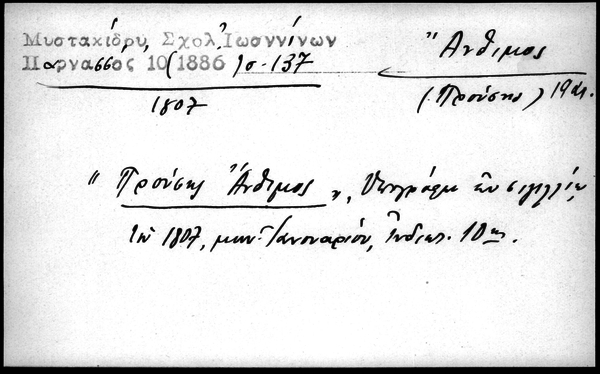 Μυστακίδου, Σχολ. Ἰωαννίνων
Παρνασσος 10 (1886) σ. 137
1807
Ἄνθιμος
(Προύσης) 19 αι.
"Προύσης Ἄνθιμος", ὑπογράφει ἐν σιγιλλίῳ
τοῦ 1807, μην. Ἰανουαρίου, Ἰνδικτ. 10ης.